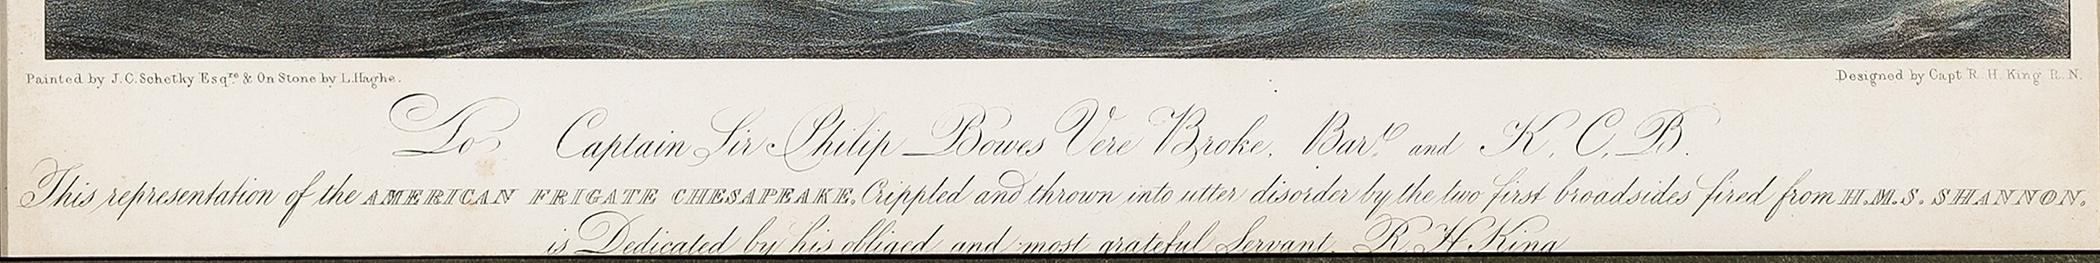 Painted by J.C. Schetky Esqre. & On Stone by L. Haghe.
Designed by Capt. R. H. King R. N.
To Captain Sir Philip Bowes Vere Broke, Bart. and K. C. B.
This representation of the AMERICAN FRIGATE CHESAPEAKE, Crippled and thrown into utter disorder by the two first broadsides fired from H.M.S. SHANNON,
is Dedicated by his obliged and most grateful Servant, R H King